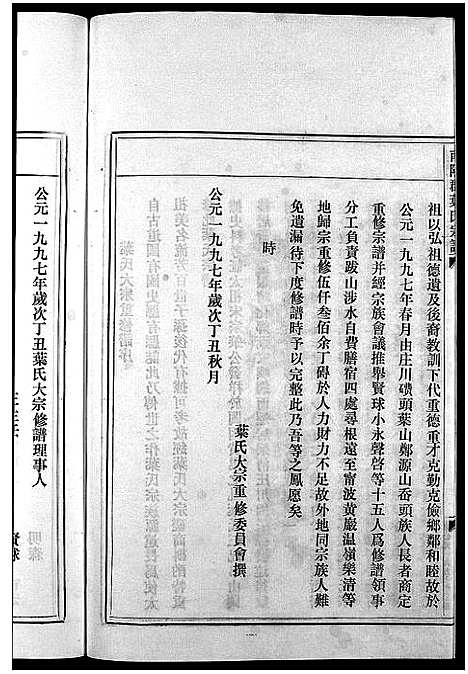 南陽郡葉氏宗譜
祖以弘祖德遺及後裔教訓下代重德重才克勤克儉鄉鄰和睦故於
公元一九九七年春月由庄川磺頭葉山鄭源山岙頭族人長者商定
重修宗譜并經宗族會議推舉賢球小永聲啓等十五人爲修譜領事
分工負責跋山涉水自費膳宿四處尋根遠至甯波黃巖温嶺樂清等
地歸宗重修伍仟叁佰余丁碍於人力財力不足故外地同宗族人難
免遺漏待下度修譜時予以完整此乃吾等之鳳愿矣
時
公元一九九七年歲次丁丑秋月
葉氏大宗重修委員會撰
公元一九九七年歲次丁丑葉氏大宗修譜理事人